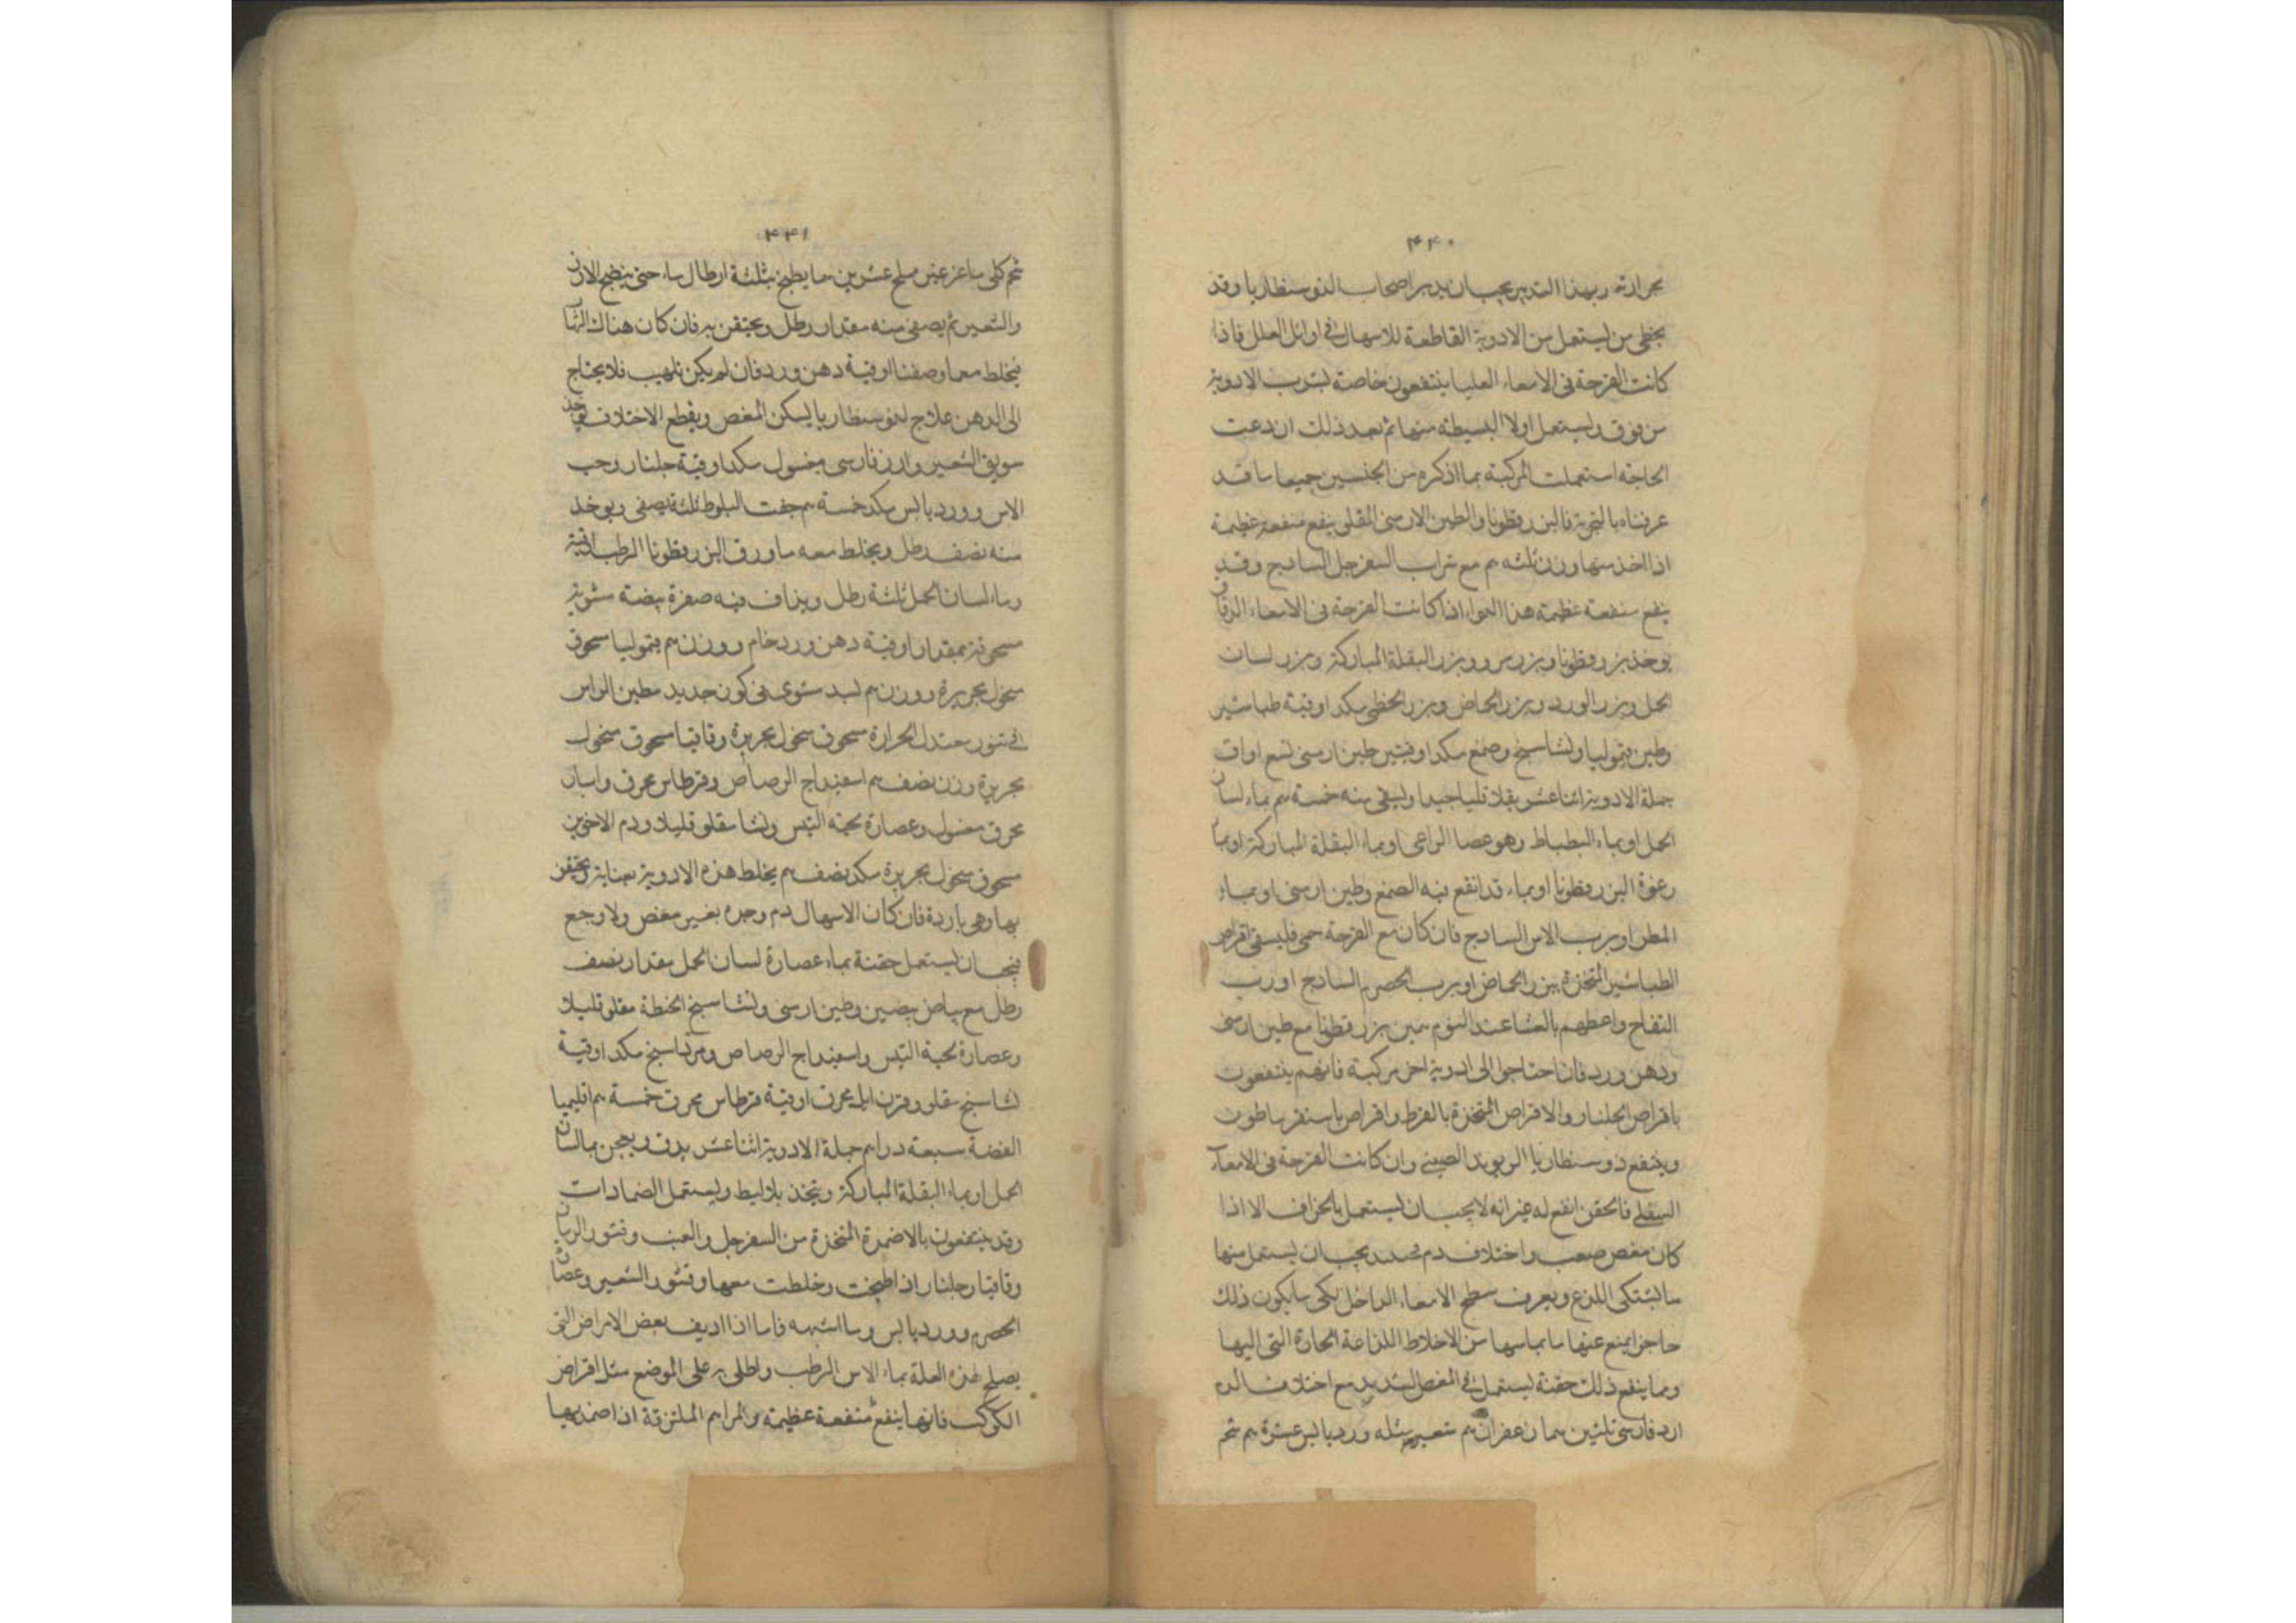 ۴۴۰
بحرارته وبهذا التدبير يجب ان يدبر اصحاب الدوسنطاريا وقد
يخطى من يستعمل من الادوية القاطعة للاسهال فى اوائل العلل فاذا
كانت القرحة فى الامعاء العليا ينتفعون خاصة بشرب الادوية
من فوق ويستعمل اولا البسيطه منها ثم بعد ذلك ان دعت
الحاجة استعملت المركبة بما اذكره من الجنسين جميعا ما قد
عرفناه بالتجربة فالبزرقطونا والطين الارمنى المقلو ينفع منفعة عظيمة
اذا اخذ منها وزن ثلثه م مع شراب السفرجل السادج وقد
ينفع منفعة عظيمة هذا الدواء اذا كانت القرحة فى الامعاء الدقاق
يوخذ بزرقطونا وبزر مرو وبزر البقلة المباركة وبزر لسان
الحمل وبزر الورد وبزر الحماض وبزر الخطمى مكد اوقية طباشير
وطين قيموليا ونشاسنج وصمغ مكد اوقيتين طين ارمنى تسع اواق
جملة الادوية اثنا عشر يقلا قليا جيدا ويسقى منه خمسة م بماء لسان
الحمل او بماء البطباط وهو عصا الراعى او بماء البقلة المباركة او بماء
رغوة البزرقطونا او بماء قد انقع فيه الصمغ وطين ارمنى او بماء
المطر او برب الاس السادج فان كان مع القرحة حمى فليسقى اقراص
الطباشير المتخذة ببزر الحماض او برب الحصرم السادج او رب
التفاح واعطهم بالعشا عند النوم بزرقطونا مع طين ارمنى
ودهن ورد فان احتاجوا الى ادوية اخر مركبة فانهم ينتفعون
باقراص الجلنار والاقراص المتخذة بالقرط واقراص
وينفع دوسنطاريا الريوند الصينى وان كانت القرحة فى الامعاء
السفلى فالحقن انفع له غير انه لا يجب ان يستعمل بالجزاف الا اذا
كان مغص صعب واختلاف دم يجب ان يستعمل منها
ما يسكن اللذع ويعرف سطح الامعاء الداخل لكى ما يكون ذلك
حاجزا يمنع عنها ما يماسها من الاخلاط اللذاعة الحارة التى اليها
ومما ينفع ذلك حقنة يستعمل فى المغص الشديد مع اختلاف الدم
ارز فارسى ثلثين م شعير مثله ورد يابس عشرة م شحم
۴۴۱
شحم كلى ماعز غير مملح عشرين يطبخ بثلثة ارطال ماء حتى ينضج الارز
والشعير ثم يصفى منه مقدار رطل ويحتقن به فان كان هناك التهاب
فيخلط مع ما وصفنا اوقية دهن ورد فان لم يكن تلهيب فلا يحتاج
الى الدهن علاج لدوسنطاريا يسكن المغص ويقطع الاختلاف يوخذ
سويق الشعير وارز فارسى مغسول مكد اوقية جلنار وحب
الاس وورد يابس مكد خمسة م جفت البلوط ثلثة يصفى ويوخذ
منه نصف رطل ويخلط معه ماء ورق البزرقطونا الرطب اوقية
وماء لسان الحمل ثلثة رطل ويذاف فيه صفرة بيضة مشوية
مسحوقة بمقدار اوقية دهن ورد خام ووزن م قيموليا مسحوق
منخول بحريرة ووزن م مشوى فى كوز حديد مطين الراس
فى تنور معتدل الحرارة مسحوق منخول بحريرة وقاقيا مسحوق منخول
بحريرة وزن نصف م اسفيداج الرصاص وقرطاس محرق
محرق مغسول وعصارة لحية التيس ونشا مقلو قليلا ودم الاخوين
مسحوق منخول بحريرة مكد نصف م يخلط هذه الادوية بعناية ويحتقن
بها وهى باردة فان كان الاسهال دم وحده بغير مغص ولا وجع
فيجب ان يستعمل حقنة بماء عصارة لسان الحمل مقدار نصف
رطل مع بياض بيضتين وطين ارمنى ونشا سنج الحنطة مقلو قليلا
وعصارة لحية التيس واسفيداج الرصاص ومرداسنج مكد اوقية
نشاسنج مقلو وقرن ايل محرق اوقية قرطاس محرق خمسة م اقليميا
الفضة سبعة دراهم جملة الادوية اثنا عشر يدق ويعجن بماء لسان
الحمل او بماء البقلة المباركة ويتخذ بلاليط ويستعمل الضمادات
وقد ينتفعون بالاضمدة المتخذة من السفرجل والعنب وقشور الرمان
وقاقيا وجلنار اذا طبخت وخلطت معها وقشور الشعير وعصارة
الحصرم وورد يابس وما اشبهه فاما اذا اديف بعض الاقراص التى
يصلح لهذه العلة بماء الاس الرطب واطلى به على الموضع مثل اقراص
الكوكب فانها ينفع منفعة عظيمة والمراهم الملتزقة اذا ضمد بها